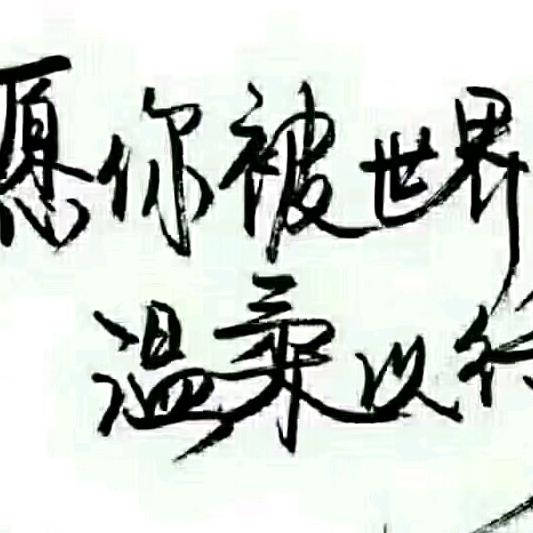 愿你被世界
温柔以